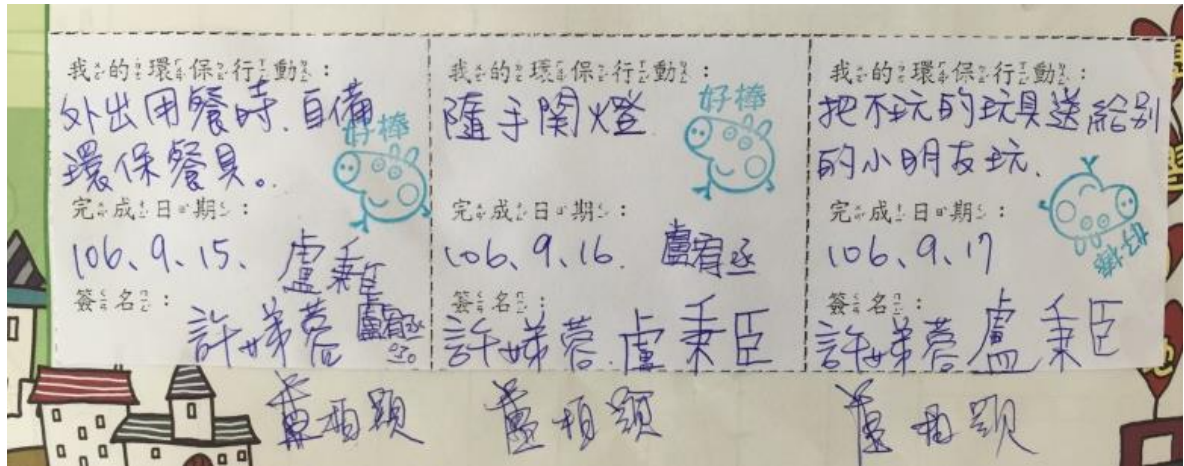 我的環保行動：
外出用餐時、自備
環保餐具。
好棒
完成日期：
106、9、15、
盧秉臣
簽名：
許娣蓉
盧宥丞
盧柏顕
我的環保行動：
隨手関燈
好棒
完成日期：
106、9、16.
盧宥丞
簽名：
許娣蓉.盧秉臣
盧柏顕
我的環保行動：
把不玩的玩具送給別
的小朋友玩、
好棒
完成日期：
106、9、17
簽名：
許娣蓉 盧秉臣
盧柏顕